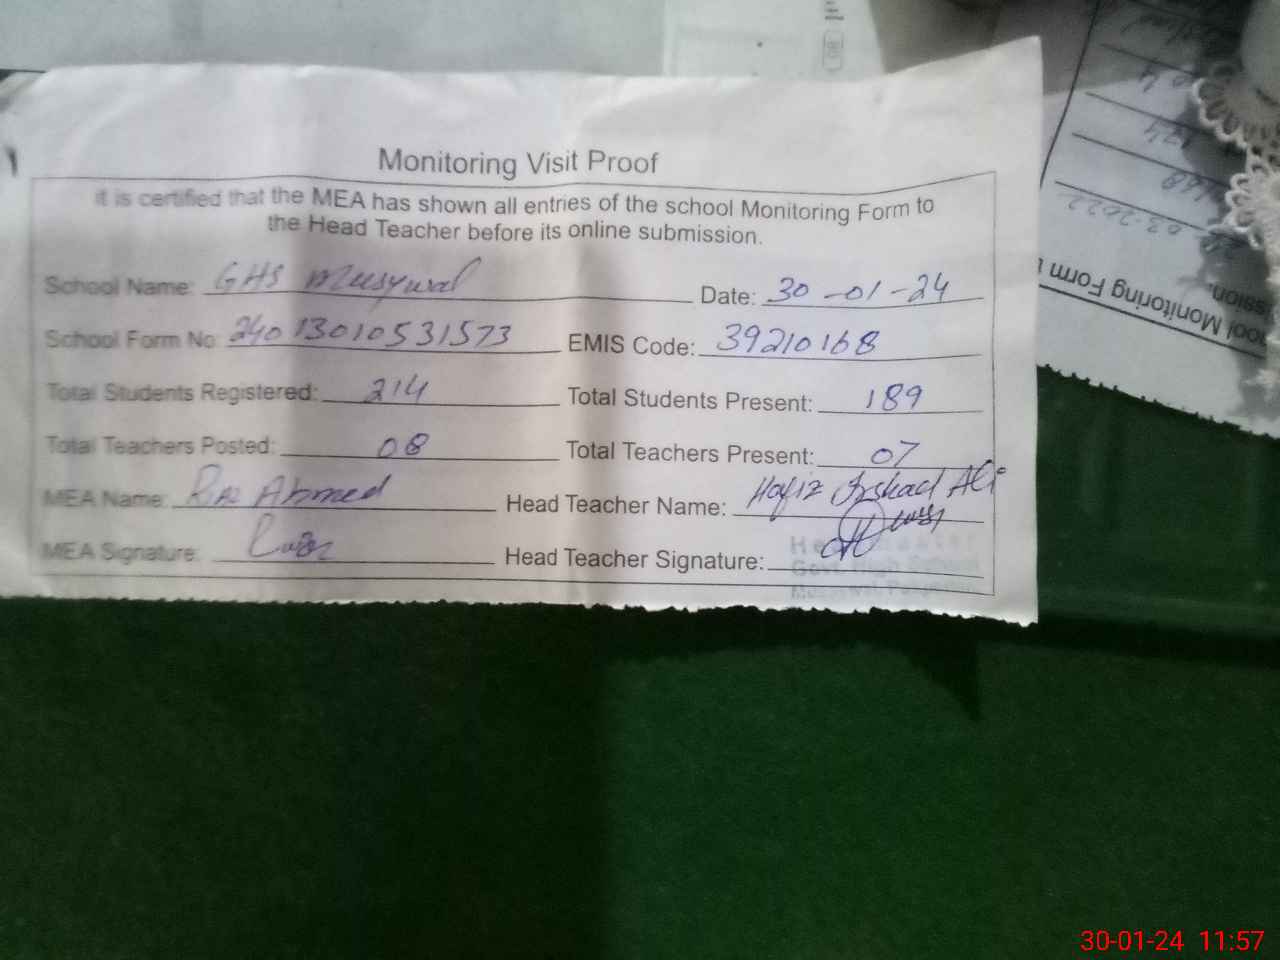 Monitoring Visit Proof
it is certified that the MEA has shown all entries of the school Monitoring Form to
the Head Teacher before its online submission.
School Name: GHS Date: 30-01-24
School Form No: 24013010531573 EMIS Code: 39210168
Total Students Registered: 214 Total Students Present: 189
Total Teachers Posted: 08 Total Teachers Present: 07
MEA Name: Riaz Ahmed Head Teacher Name: Hafiz Arshad Ali
MEA Signature: Head Teacher Signature:
Govt. High School
03-2022
ool Monitoring Form
ssion.
30-01-24 11:57